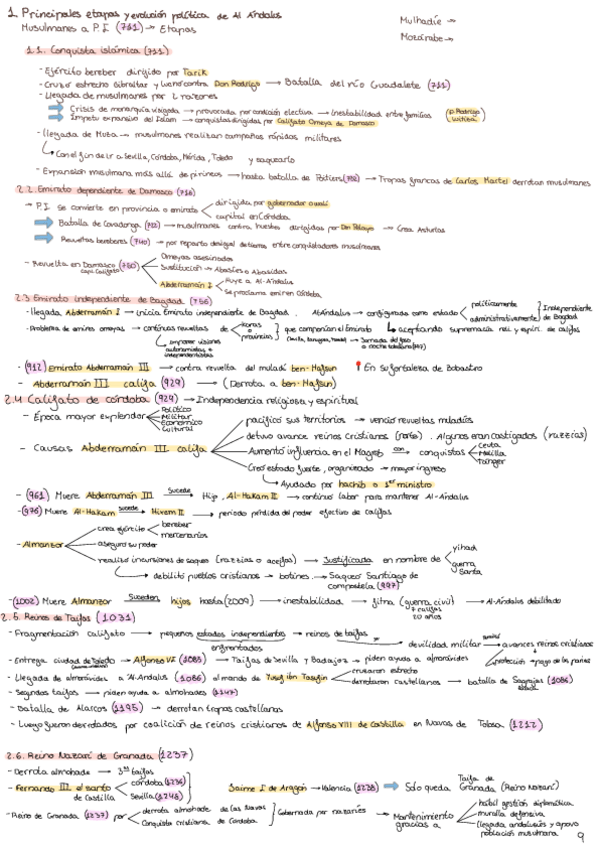 1. Principales etapas y evolución política de Al Ándalus
Musulmanes a P.I. (711) → Etapas
Mulhadíe →
Mozárabe →
1.1. Conquista islámica (711)
- Ejército bereber dirigido por Tarik
- Cruzó estrecho Gibraltar y luchó contra Don Rodrigo → Batalla del río Guadalete (711)
- Llegada de musulmanes por 2 razones
Crisis de monarquía visigoda → provocada por condición electiva → inestabilidad entre familias (D. Rodrigo
Witiza)
Ímpetu expansivo del Islam → conquistas dirigidas por Califato Omeya de Damasco
- llegada de Muza → musulmanes realizan campañas rápidas militares
Con el fin de ir a Sevilla, Córdoba, Mérida, Toledo y saquearlo
- Expansión musulmana más allá de pirineos → hasta batalla de Poitiers (732) → Tropas francas de Carlos Martel derrotan musulmanes
2.2. Emirato dependiente de Damasco (716)
- P.I. se convierte en provincia o emirato
dirigida por gobernador o walí
capital en Córdoba
Batalla de Covadonga (722) → musulmanes contra huestes dirigidas por Don Pelayo → Crea Asturias
Revueltas bereberes (740) → por reparto desigual de tierras entre conquistadores musulmanes
- Revuelta en Damasco (750)
capi. Califato
Omeyas asesinados
Sustitución → Abasíes o Abasidas
Abderramán I
Huye a Al-Ándalus
Se proclama emir en Córdoba
2.3 Emirato independiente de Bagdad (756)
- llegada Abderramán I → inicia Emirato independiente de Bagdad. Al-Ándalus → configurada como estado
políticamente
administrativamente
Independiente
de Bagdad
- Problema de emires omeyas → continuas revueltas de
koras o
provincias
que componían el Emirato
aceptando supremacía reli. y espiri. de califas
imponer visiones
autonomistas e
independentistas
→ Jornada del foso
o noche toledana (797)
- (912) Emirato Abderramán III → contra revuelta del muladí ben-Hafsun
En su fortaleza de Bobastro
- Abderramán III califa (929) → (Derrota a ben-Hafsun)
2.4 Califato de córdoba (929) → Independencia religiosa y espiritual
- Época mayor esplendor
Político
Militar
Económico
Cultural
- Causas Abderramán III califa
pacificó sus territorios → venció revueltas muladíes
detuvo avance reinos cristianos (norte). Algunos eran castigados (razzias)
Aumentó influencia en el Magreb con conquistas
Ceuta
Melilla
Tánger
Creó estado fuerte, organizado → mayor ingreso
Ayudado por hachib o 1er ministro
- (961) Muere Abderramán III Sucede Hijo, Al-Hakam II → continuó labor para mantener Al-Ándalus
- (976) Muere Al-Hakam sucede Hixem II → periodo pérdida del poder efectivo de califas
- Almanzor
crea ejército
bereber
mercenarios
aseguró su poder
realizó incursiones de saqueo (razzias o aceifas) → Justificada en nombre de
yihad
guerra
Santa
debilitó pueblos cristianos → botines → Saqueo Santiago de
compostela (997)
- (1002) Muere Almanzor Suceden hijos hasta (2009) → inestabilidad → fitna (guerra civil)
7 califas
20 años
→ Al-Ándalus debilitado
2.5. Reinos de Taifas (1031)
- Fragmentación califato → pequeños estados independientes → reinos de taifas
enfrentados
devilidad militar
avances reinos cristianos
protección → pago de las parias
- Entrega ciudad de Toledo → Alfonso VI (1085) → Taifas de Sevilla y Badajoz → piden ayuda a almorávides
- Llegada de almorávides a Al-Ándalus (1086) al mando de Yusuf ibn Tasufin
cruzaron estrecho
derrotaron castellanos → batalla de Sagrajas (1086)
- Segundas taifas → piden ayuda a almohades (1147)
- Batalla de Alarcos (1195) → derrotan tropas castellanas
- Luego fueron derrotados por coalición de reinos cristianos de Alfonso VIII de Castilla en Navas de Tolosa (1212)
2.6. Reino Nazarí de Granada (1237)
- Derrota almohade → 3as taifas
- Fernando III el santo
de Castilla
córdoba (1236)
Sevilla (1248)
Jaime I de Aragón → Valencia (1238)
Solo queda Taifa de
Granada (Reino Nazarí)
- Reino de Granada (1237) por
derrota almohade de las Navas
Conquista cristiana de Córdoba
Gobernada por nazaríes
Mantenimiento
gracias a
hábil gestión diplomática
muralla defensiva
llegada andalusíes y apoyo
población musulmana
9